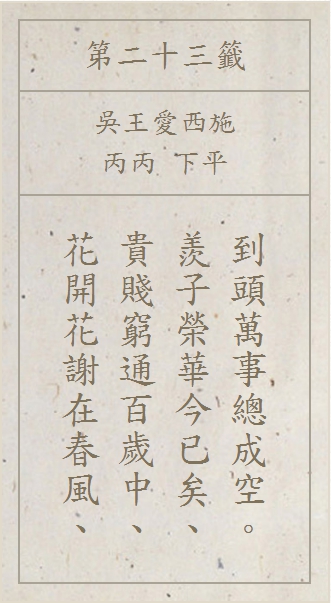 第二十三籤
吳王愛西施
丙丙 下平
花開花謝在春風、
貴賤窮通百歲中、
羨子榮華今已矣、
到頭萬事總成空。